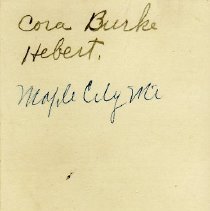 Cora Burke
Hebert.
Maple City Mi